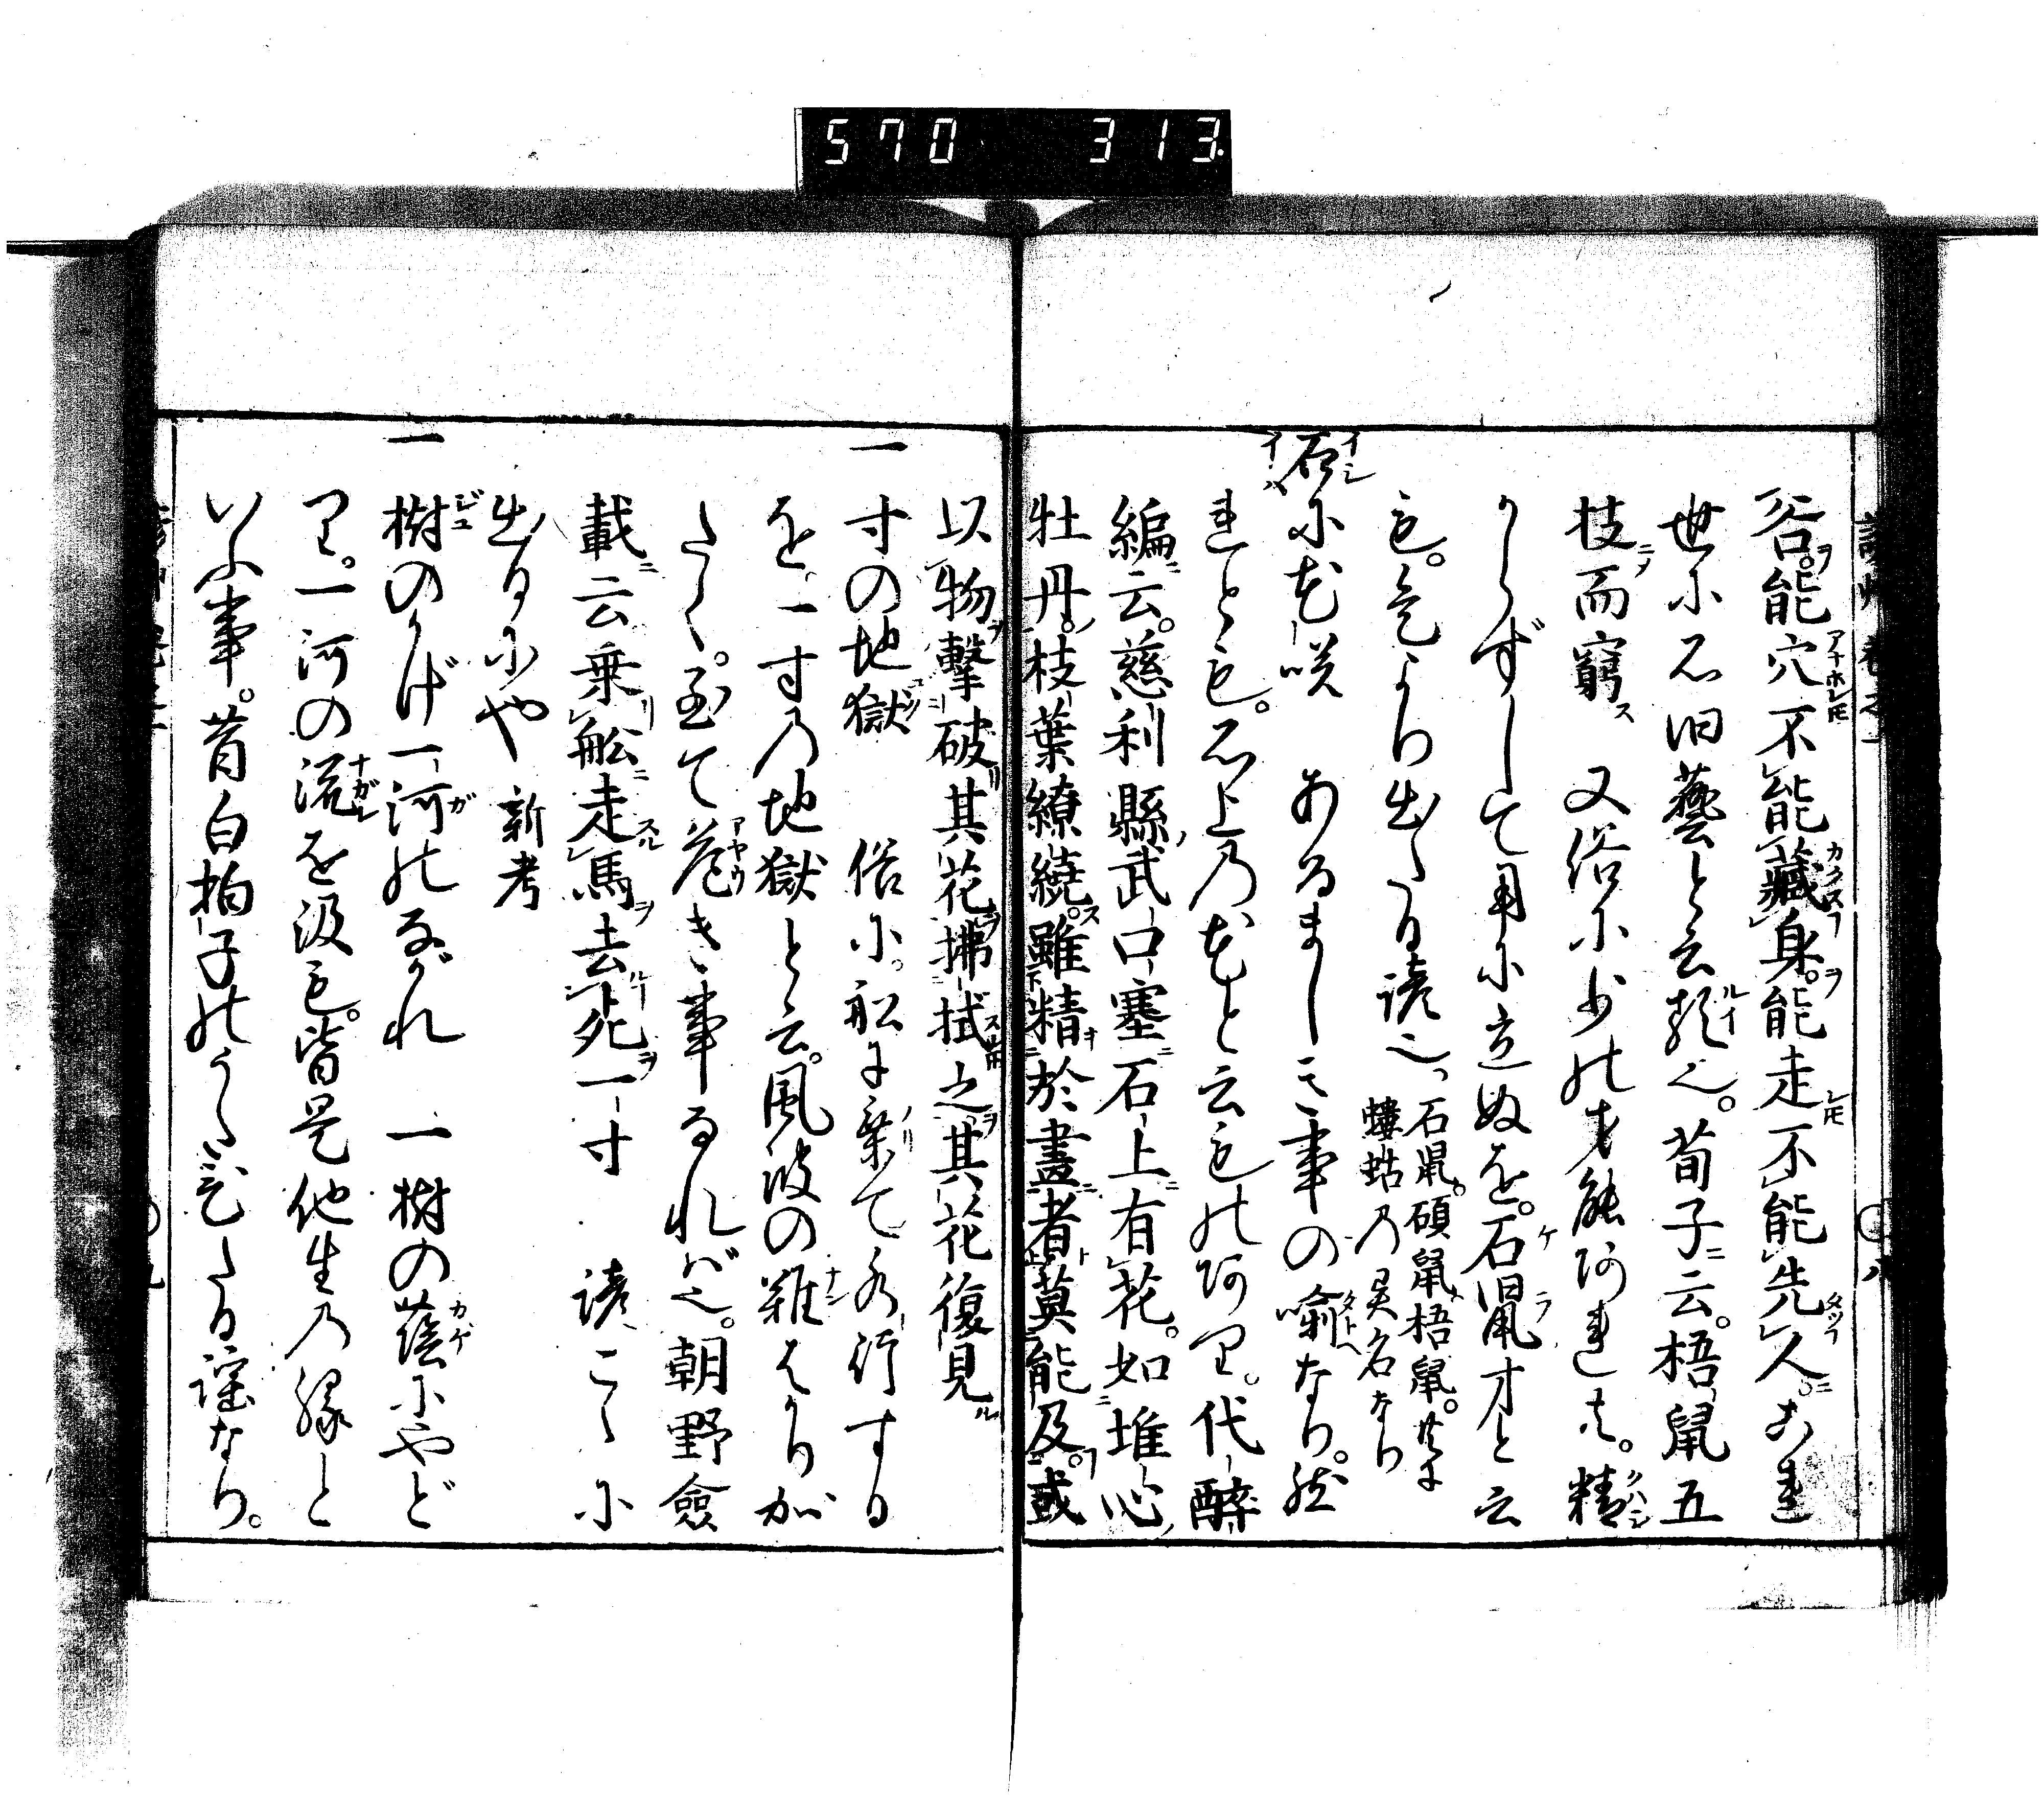 570 313.
谷。能穴不能藏身。能走不能先人。これ
世に石旧藝と云類也。荀子云。梧鼠五
技而窮 又俗に少の才能あれば。精
からずして用に立ぬを。石鼠才と云
も。是より出たる諺也 石鼠。碩鼠梧鼠。共に
螻蛄乃異名なり
石に花咲 あるまじき事の喩なり。然
れども。石上乃花と云ものあり。代醉
編云。慈利縣武口塞石上有花。如堆心
牡丹。枝葉繚繞。雖精於畫者莫能及。或
以物撃破其花拂拭之其花復見
一寸の地獄 俗に。船に乗て水行する
を一寸乃地獄と云。風波の難はかりが
たく。至て危き事なれば也。朝野僉
載云乗船走馬去死一寸 諺こゝに
出るにや 新考
一樹のかげ一河のながれ 一樹の蔭にやど
り。一河の流を汲も。皆是他生乃縁と
いふ事。昔白拍子のうたひたる謡なり。